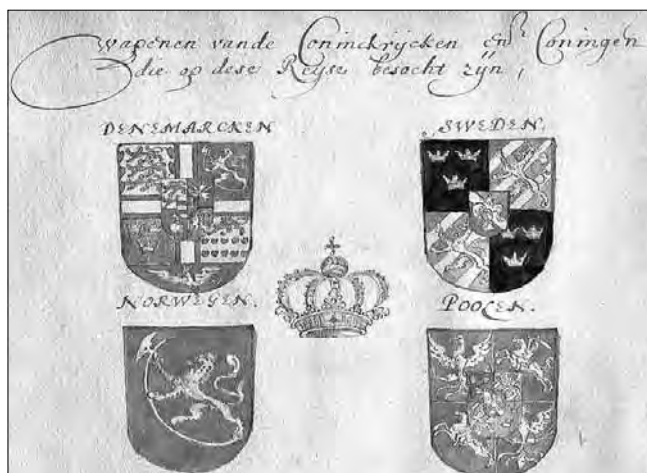 Wapenen vande Coninckrijcken enᵈᵉ Coningen
die op dese Reijse besocht zijn,
DENEMARCKEN
SWEDEN.
NORWEGEN.
POOLEN.